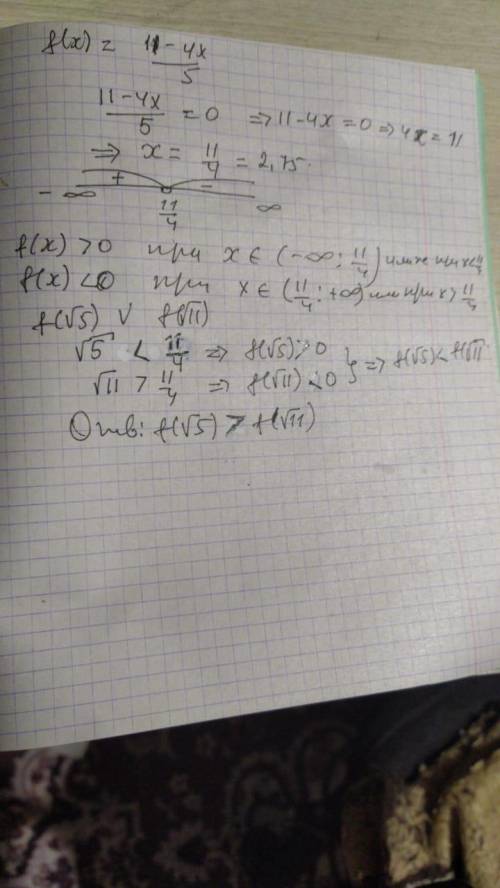 f(x) = 11 - 4x / 5
11 - 4x / 5 = 0 => 11 - 4x = 0 => 4x = 11
=> x = 11/4 = 2,75.
+ -
- ∞ 11/4 ∞
f(x) > 0 при x ∈ (-∞; 11/4) или при x < 11/4
f(x) < 0 при x ∈ (11/4; +∞) или при x > 11/4
f(√5) V f(√11)
√5 < 11/4 => f(√5) > 0
√11 > 11/4 => f(√11) < 0 } => f(√5) < f(√11)
Отв: f(√5) > f(√11)